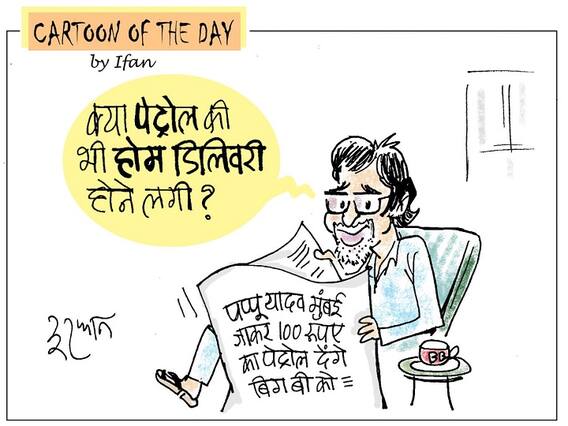 CARTOON OF THE DAY
by Ifan
क्या पेट्रोल की
भी होम डिलिवरी
होने लगी?
पप्पू यादव मुंबई
जाकर 100 रुपए
का पेट्रोल देंगे
बिग बी को
BB
इरफ़ान